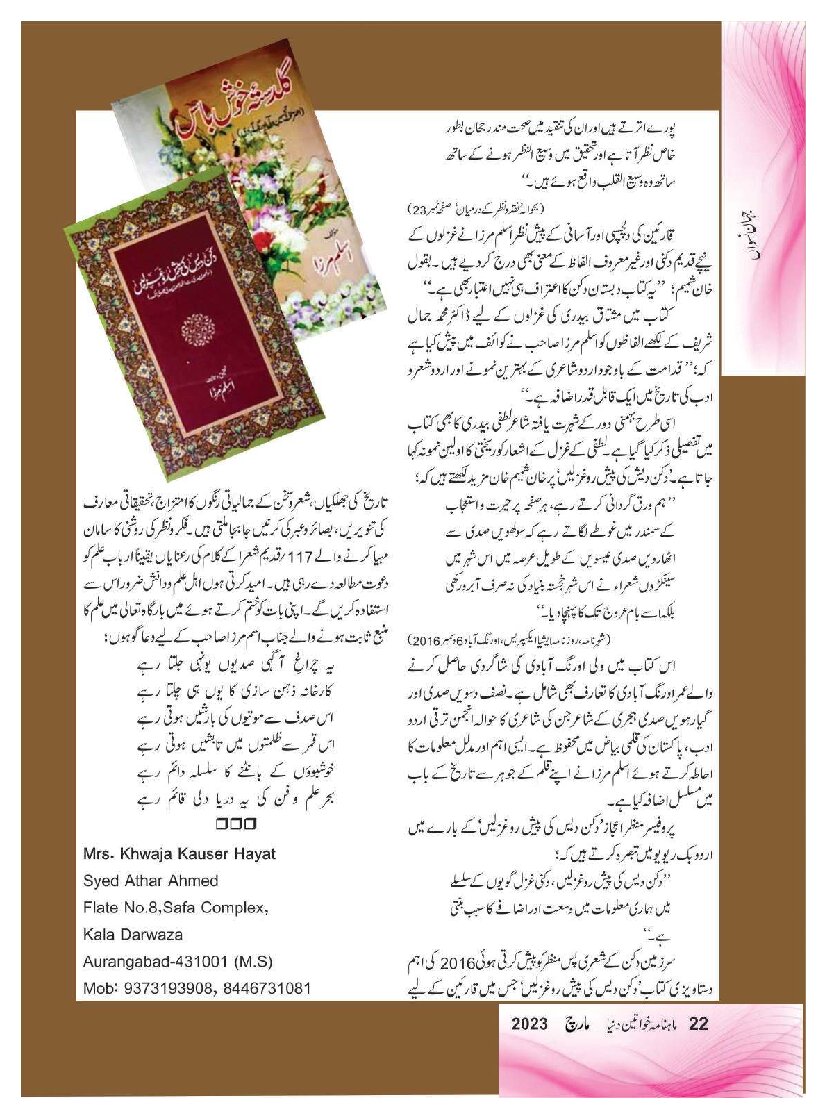 گلدستۂ خوش باس
اسلم مرزا
دکن دیس کی پیش رو غزلیں
اسلم مرزا
پورے اترتے ہیں اور ان کی تنقید میں صحت مند رجحان بطور
خاص نظر آتا ہے اور تحقیق میں وسیع النظر ہونے کے ساتھ
ساتھ وہ وسیع القلب واقع ہوئے ہیں۔‘‘
(بحوالہ ’نقد و نظر کے درمیان‘ صفحہ نمبر 23)
قارئین کی دلچسپی اور آسانی کے پیش نظر اسلم مرزا نے غزلوں کے
نیچے قدیم دکنی اور غیر معروف الفاظ کے معنی بھی درج کر دیے ہیں۔ بقول
خان شمیم؛ ’’یہ کتاب دبستان دکن کا اعتراف ہی نہیں اعتبار بھی ہے۔‘‘
کتاب میں مشتاق بیدری کی غزلوں کے لیے ڈاکٹر محمد جمال
شریف کے لکھے الفاظوں کو اسلم مرزا صاحب نے کوائف میں پیش کیا ہے
کہ؛ ’’قدامت کے باوجود اردو شاعری کے بہترین نمونے اور اردو شعر و
ادب کی تاریخ میں ایک قابل قدر اضافہ ہے۔‘‘
اسی طرح بہمنی دور کے شہرت یافتہ شاعر لطفی بیدری کا بھی کتاب
میں تفصیلی ذکر کیا گیا ہے۔ لطفی کے غزل کے اشعار کو ریختی کا اولین نمونہ کہا
جاتا ہے۔ ’دکن دیش کی پیش رو غزلیں‘ پر خان شمیم خان مزید لکھتے ہیں کہ؛
’’ہم ورق گردانی کرتے رہے، ہر صفحہ پر حیرت و استعجاب
کے سمندر میں غوطے لگاتے رہے کہ سولھویں صدی سے
اٹھارویں صدی عیسویں کے طویل عرصہ میں اس شہر میں
سینکڑوں شعراء نے اس شہر خجستہ بنیاد کی نہ صرف آبرو رکھی
بلکہ اسے بام عروج تک کا پہنچا دیا۔‘‘
(شہر نامہ، روزنامہ ایشیا ایکسپریس، اورنگ آباد 6 دسمبر 2016)
اس کتاب میں ولی اورنگ آبادی کی شاگردی حاصل کرنے
والے عمر اورنگ آبادی کا تعارف بھی شامل ہے۔ نصف دسویں صدی اور
گیارہویں صدی ہجری کے شاعر جن کی شاعری کا حوالہ انجمن ترقی اردو
ادب، پاکستان کی قلمی بیاض میں محفوظ ہے۔ ایسی اہم اور مدلل معلومات کا
احاطہ کرتے ہوئے اسلم مرزا نے اپنے قلم کے جوہر سے تاریخ کے باب
میں مسلسل اضافہ کیا ہے۔
پروفیسر منظر اعجاز ’دکن دیس کی پیش رو غزلیں‘ کے بارے میں
اردو بک ریویو میں تبصرہ کرتے ہیں کہ؛
’’دکن دیس کی پیش رو غزلیں، دکنی غزل گویوں کے سلسلے
میں ہماری معلومات میں وسعت اور اضافے کا سبب بنتی
ہے۔‘‘
سرزمین دکن کے شعری پس منظر کو پیش کرتی ہوئی 2016 کی اہم
دستاویزی کتاب ’دکن دیس کی پیش رو غزلیں‘ جس میں قارئین کے لیے
تاریخ کی جھلکیاں، شعر و سخن کے جمالیاتی رنگوں کا امتزاج، تحقیقاتی معارف
کی تنویریں، بصائر و عبر کی کرنیں جابجا ملتی ہیں۔ فکر و نظر کی روشنی کا سامان
مہیا کرنے والے 117/ قدیم شعرا کے کلام کی رعنایاں یقیناً ارباب علم کو
دعوت مطالعہ دے رہی ہیں۔ امید کرتی ہوں اہل علم و دانش ضرور اس سے
استفادہ کریں گے۔ اپنی بات کو ختم کرتے ہوئے میں بارگاہ تعالی میں علم کا
منبع ثابت ہونے والے جناب اسم مرزا صاحب کے لیے دعا گو ہوں؛
یہ چراغ آگہی صدیوں یونہی جلتا رہے
کارخانہ ذہن سازی کا یوں ہی چلتا رہے
اس صدف سے موتیوں کی بارشیں ہوتی رہے
اس قمر سے ظلمتوں میں تابشیں ہوتی رہے
خوشبوؤں کے بانٹنے کا سلسلہ دائم رہے
بحر علم و فن کی یہ دریا دلی قائم رہے
□□□
Mrs. Khwaja Kauser Hayat
Syed Athar Ahmed
Flate No.8,Safa Complex,
Kala Darwaza
Aurangabad-431001 (M.S)
Mob: 9373193908, 8446731081
22 ماہنامہ خواتین دنیا مارچ 2023